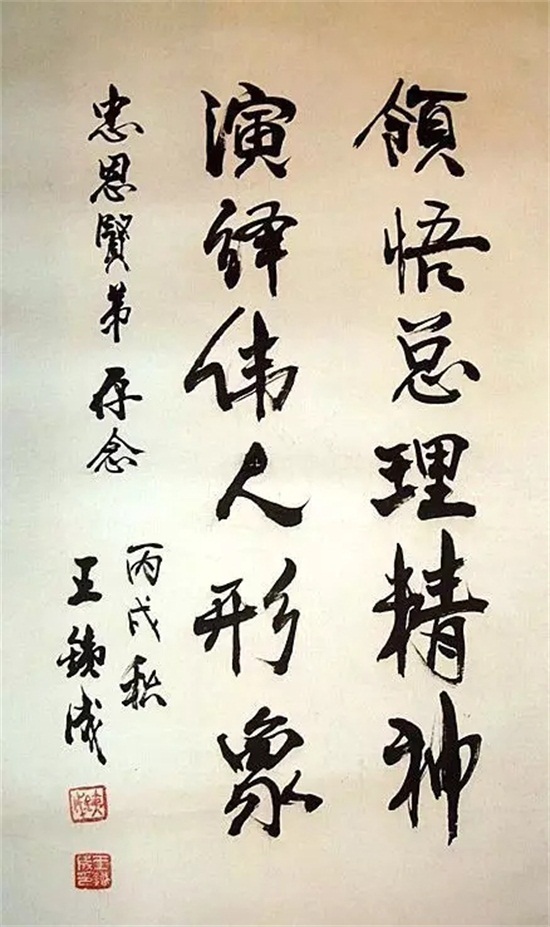 領悟总理精神
演绎伟人形象
忠恩賢弟存念
丙戌秋
王鉄成